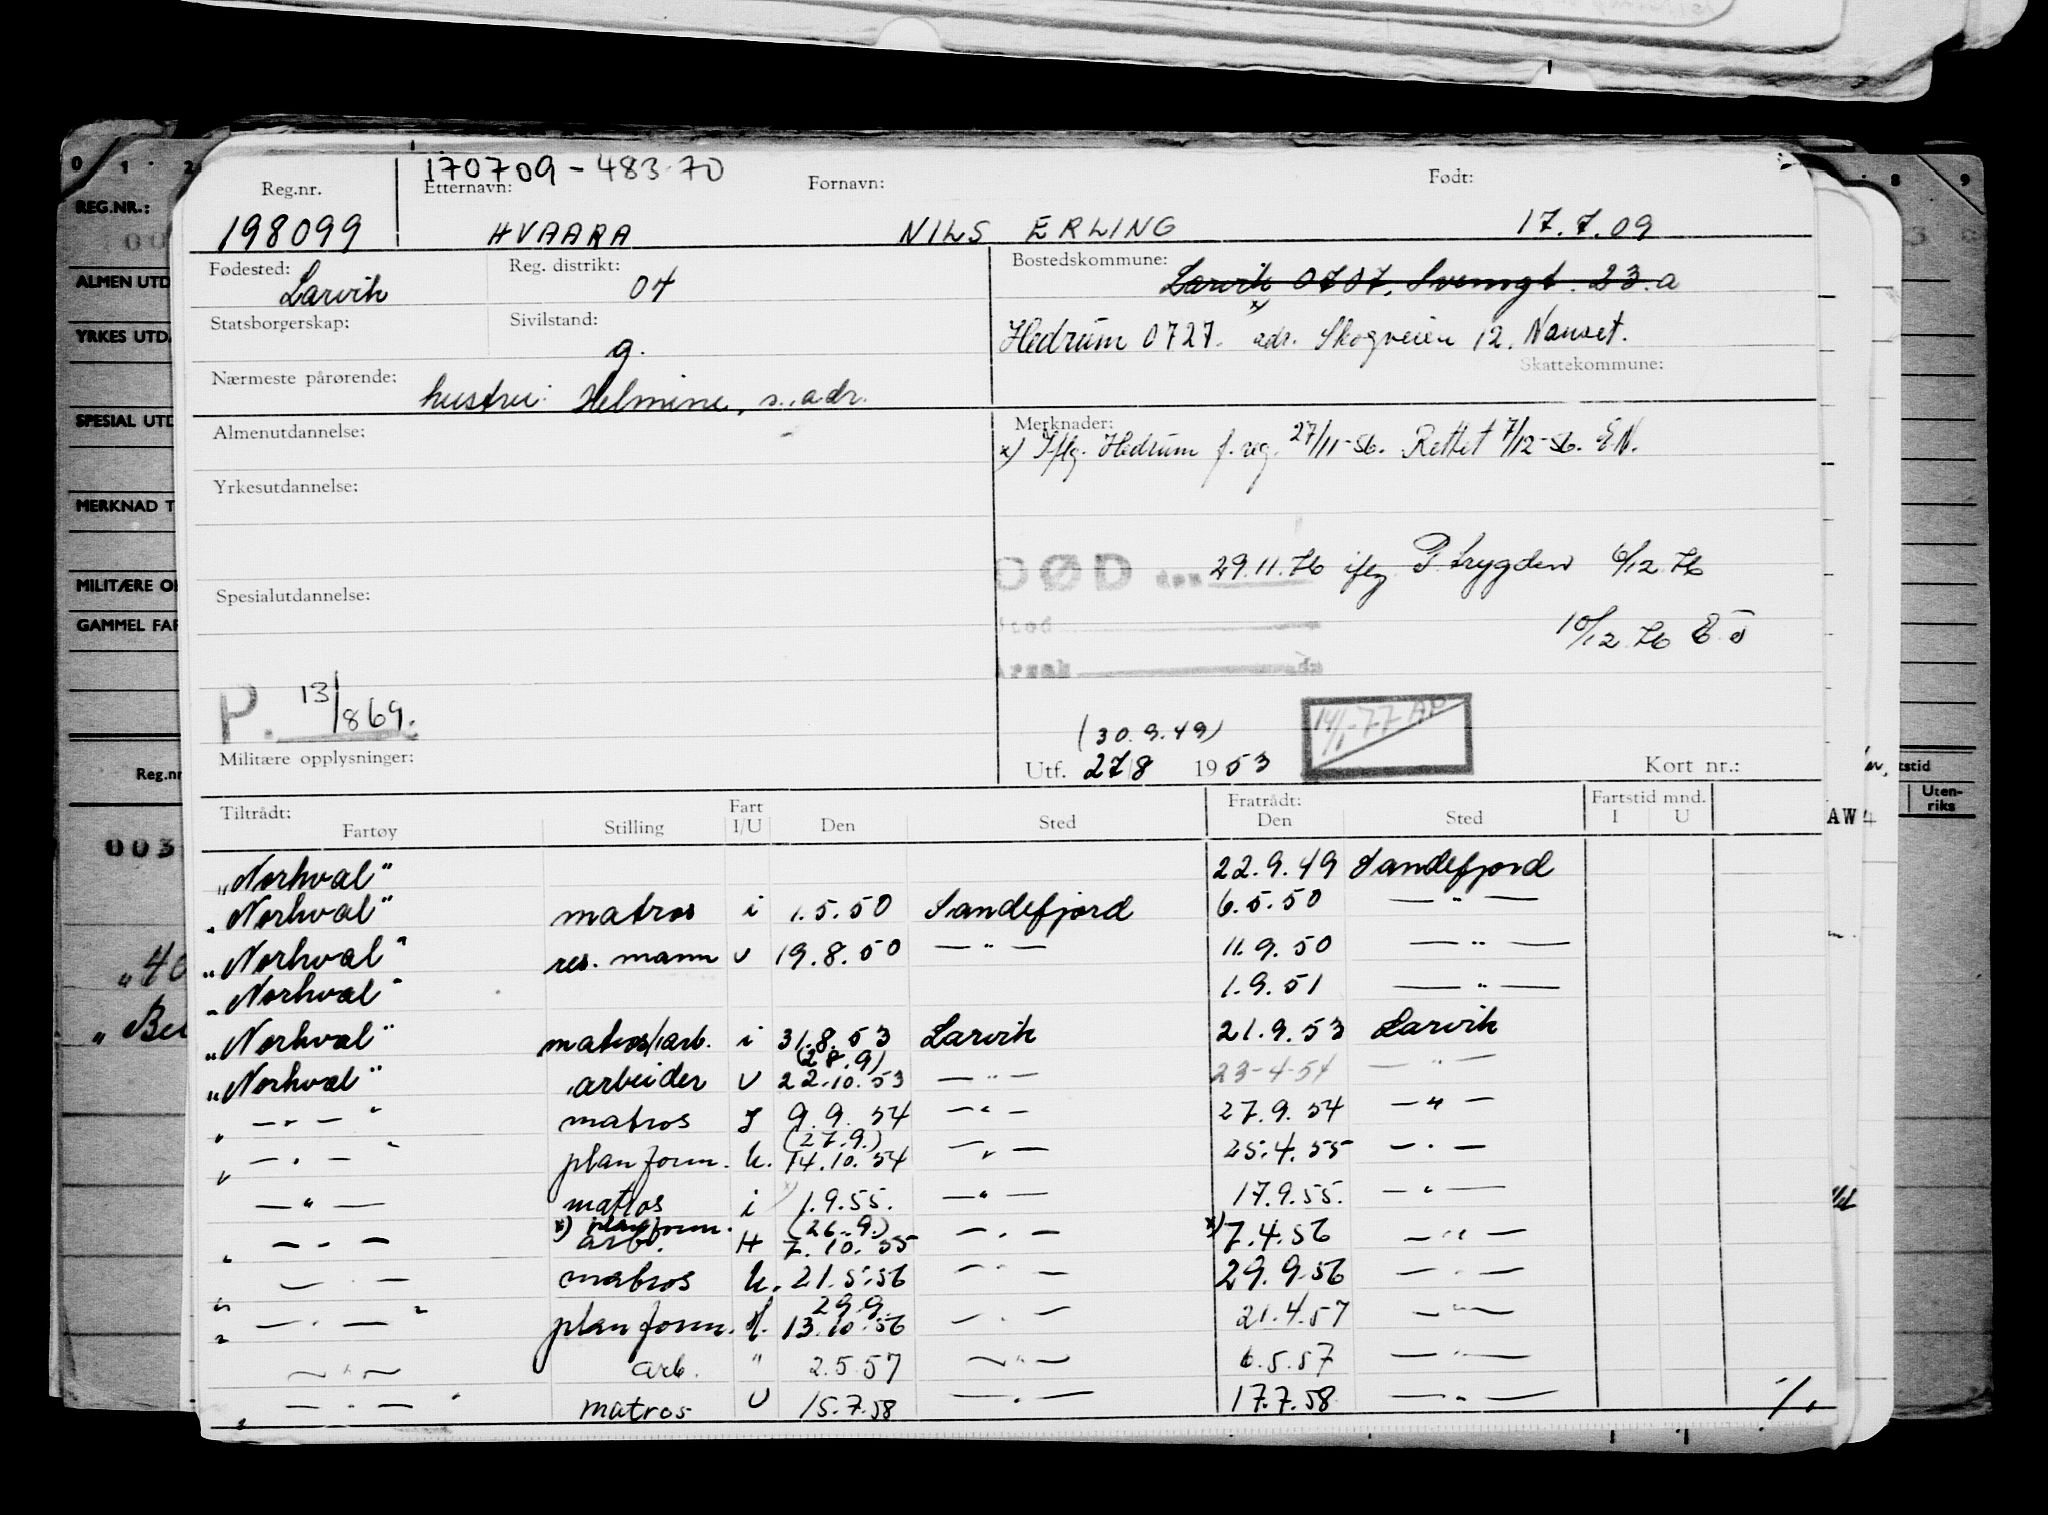 170709-483.70
Reg.nr. Etternavn: Fornavn: Født:
198099 HVAARA NILS ERLING 17.7.09
Fødested: Reg. distrikt: Bostedskommune:
Larvik 04 Larvik 0707, 23.a
Statsborgerskap: Sivilstand:
g. Hedrum 0727. x) adr. Skogveien 12, Nanset.
Skattekommune:
Nærmeste pårørende:
hustru: Helmine, s. adr.
Almenutdannelse: Merknader:
x) Iflg. Hedrum f. reg. 27/11-56. Rettet 7/12-56. E.N.
Yrkesutdannelse:
DØD den 29.11.76 iflg P. trygden 6/12.76
Spesialutdannelse:
10/12.76 E.
P. 13/869.
Militære opplysninger:
(30.9.49) 14/1-77 AP
Utf. 27/8 1953 Kort nr.:
Tiltrådt: Fart Fratrådt: Fartstid mnd.
Fartøy Stilling I/U Den Sted Den Sted I U
„Norhval" 22.9.49 Sandefjord
„Norhval" matros i 1.5.50 Sandefjord 6.5.50 — " —
„Norhval" res. mann U 19.8.50 — " — 11.9.50 — " —
„Norhval" 1.9.51 — " —
„Norhval" matros/arb. i 31.8.53 Larvik 21.9.53 Larvik
(28.9)
„Norhval" arbeider U 22.10.53 — " — 23-4-54 — " —
„ — " — " matros I 9.9.54 — " — 27.9.54 — " —
(27.9.)
„ — " — " plan form. U. 14.10.54 — " — 25.4.55 — " —
— " — matros i 1.9.55. — " — 17.9.55. — " —
x) plan form. (26.9.)
„ — " — arb. H 7.10.55 — " — x) 7.4.56 — " —
— " — matros U. 21.5.56 — " — 29.9.56 — " —
29.9.
„ — " — " plan form. H. 13.10.56 — " — 21.4.57 — " —
— " — arb. " 2.5.57 — " — 6.5.57 — " —
„ — " — " matros U 15.7.58 — " — 17.7.58 — " — ./.
0 1 2
REG.NR.:
ALMEN UTD
YRKES UTD
SPESIAL UTD
MERKNAD T
MILITÆRE O
GAMMEL FAR
Reg.nr
003
8 9
tstid
Uten-
riks
AW4